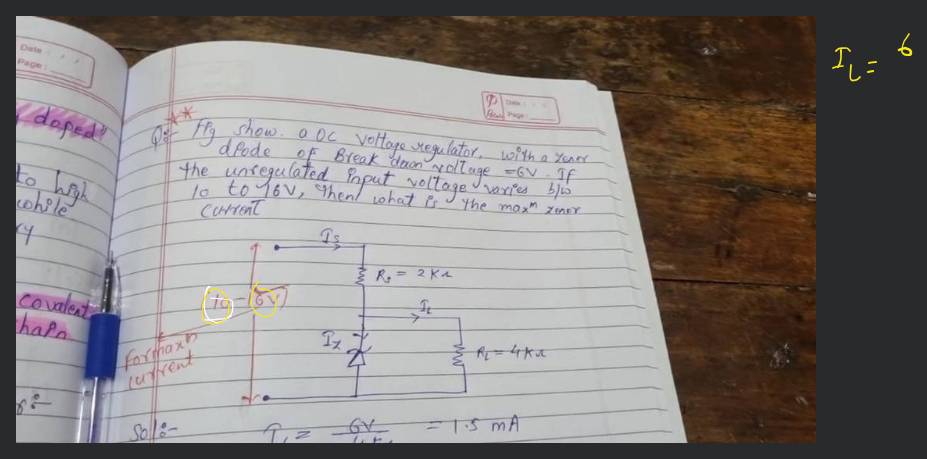 Date :
Page :
doped"
to high
while
ry
covalent
Date :
Page :
Q:- Fig show. a DC voltage regulator, with a zener
diode of Break down voltage = 6V. If
the unregulated input voltage varies b/w
10 to 16V, then what is the maxm zener
current
Is
Rs = 2KΩ
10 - 16V
IL
Iz
RL = 4KΩ
For maxm
current
Sol:-
6V
= 1.5 mA
IL = 6